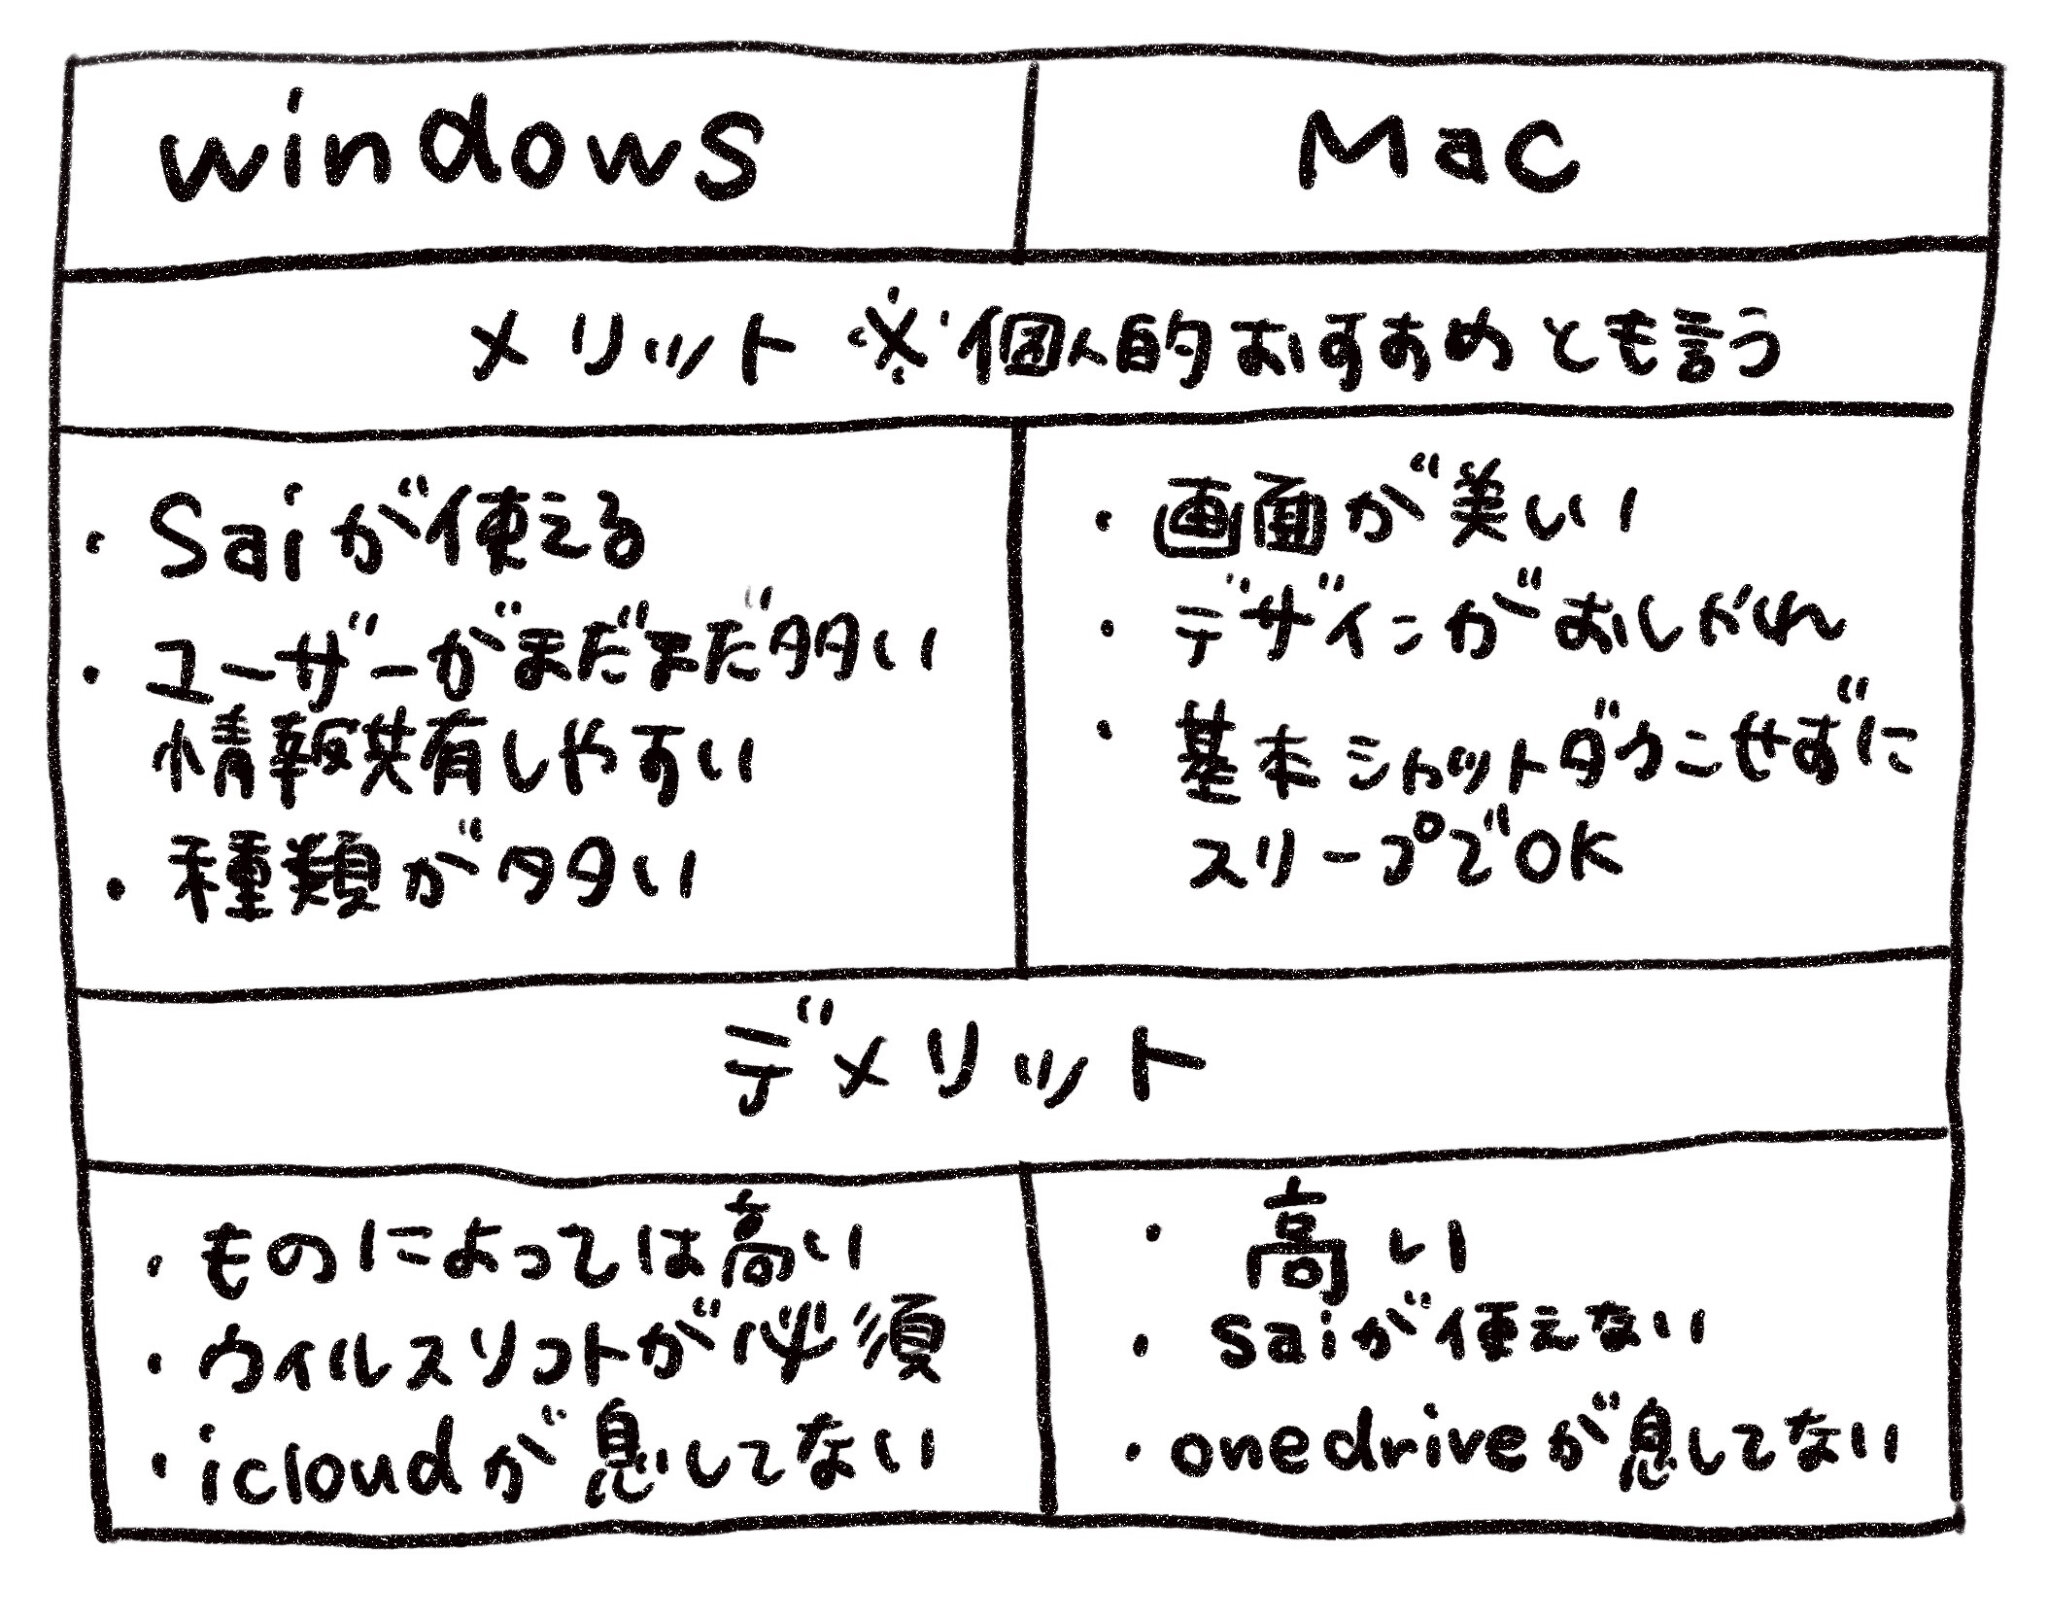 windows
Mac
メリット ※個人的おすすめとも言う
・Saiが使える
・ユーザーがまだまだ多い
情報共有しやすい
・種類が多い
・画面が美い
・デザインがおしゃれ
・基本シャットダウンせずに
スリープでOK
デメリット
・ものによっては高い
・ウィルスソフトが必須
・icloudが息してない
・高い
・saiが使えない
・onedriveが息してない